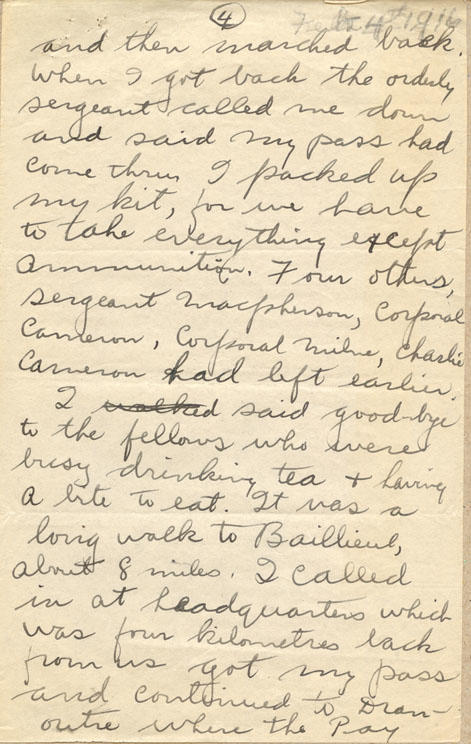 4
Feb 4th 1916
and then marched back.
When I got back the orderly
sergeant called me down
and said my pass had
come thru. I packed up
my kit, for we have
to take everything except
ammunition. Four others,
sergeant Macpherson, Corporal
Cameron, Corporal Milne, Charlie
Cameron had left earlier.
I walked said good-bye
to the fellows who were
busy drinking tea + having
a bite to eat. It was a
long walk to Baillieul,
about 8 miles. I called
in at headquarters which
was four kilometres back
from us got my pass
and continued to Dran-
outre where the Pay